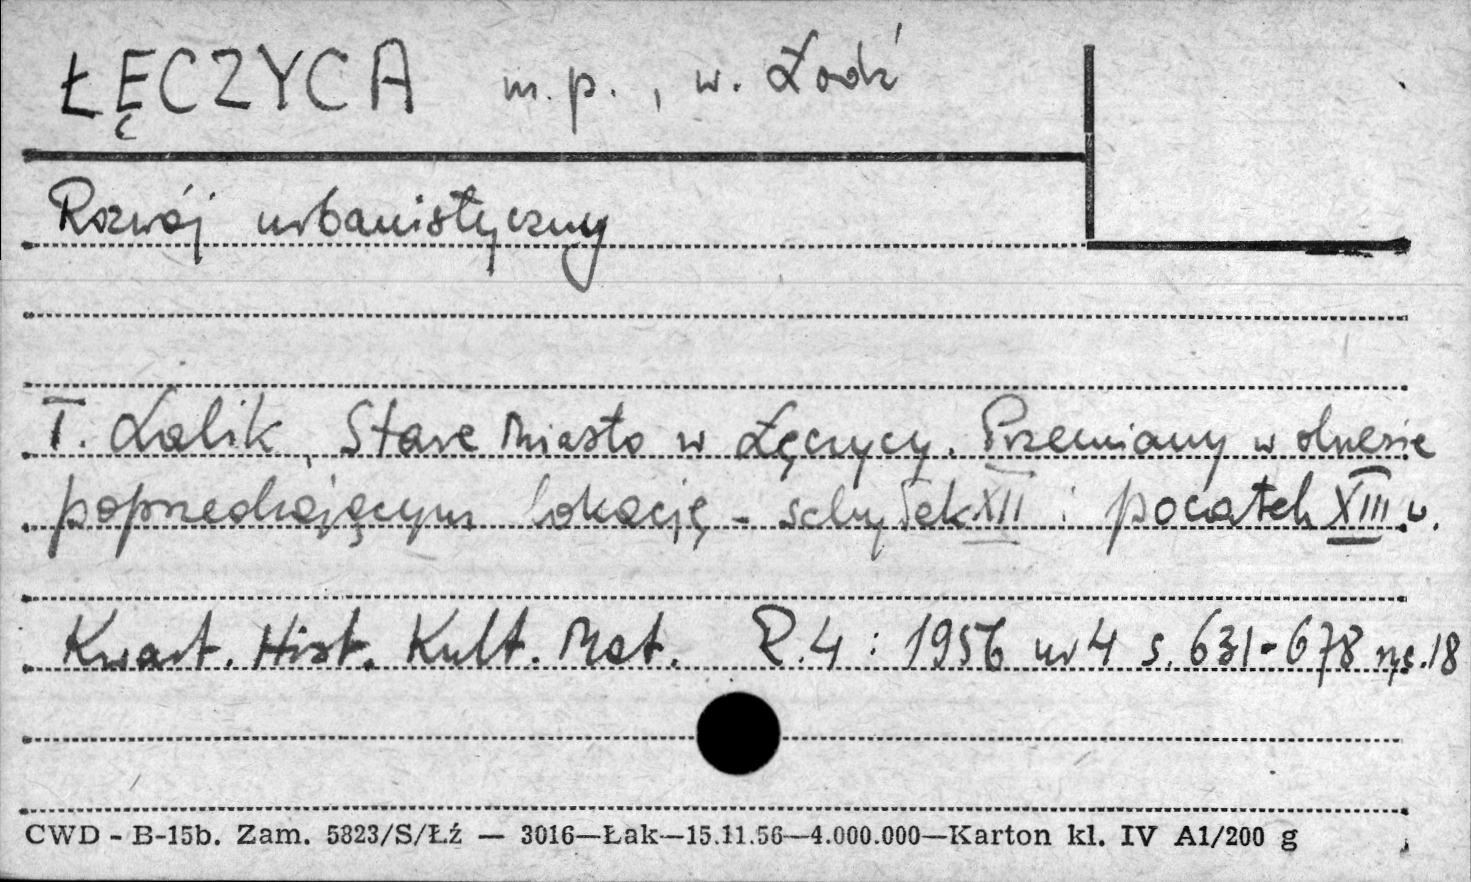 ŁĘCZYCA m.p., w. Łódź
Rozwój urbanistyczny
T. Lalik, Stare Miasto w Łęczycy. Przemiany w okresie
poprzedzającym lokację - schyłek XII i początek XIII w.
Kwart. Hist. Kult. Mat. R.4 : 1956 nr 4 s. 631-678 ryc. 18
CWD - B-15b. Zam. 5823/S/Łź — 3016—Łak—15.11.56—4.000.000—Karton kl. IV A1/200 g